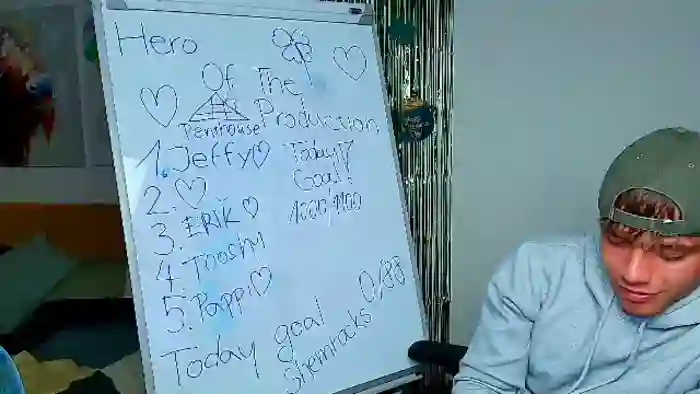 Hero
Of The
Penthouse Production
1. Jeffy♡
Today
Goal!
2. ♡
1000/1100
3. ERIK♡
4. TOOSHI
5. Pappi♡
Today goal 0/88
Shemrocks